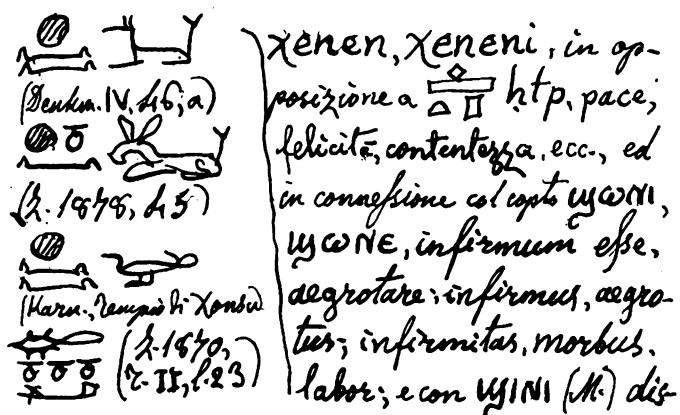 (Denkm. IV, 46, a)
(Z. 1878, 45)
(Karn., Tempio di Xonsu)
(Z. 1870,
T. II, l. 23)
χenen, χeneni, in op-
posizione a ḥtp, pace,
felicità, contentezza, ecc., ed
in connessione col copto ϣⲱⲛⲓ,
ϣⲱⲛⲉ, infirmum esse,
aegrotare; infirmus, aegro-
tus; infirmitas, morbus,
labor; e con ϣⲓⲛⲓ (M.) dis-